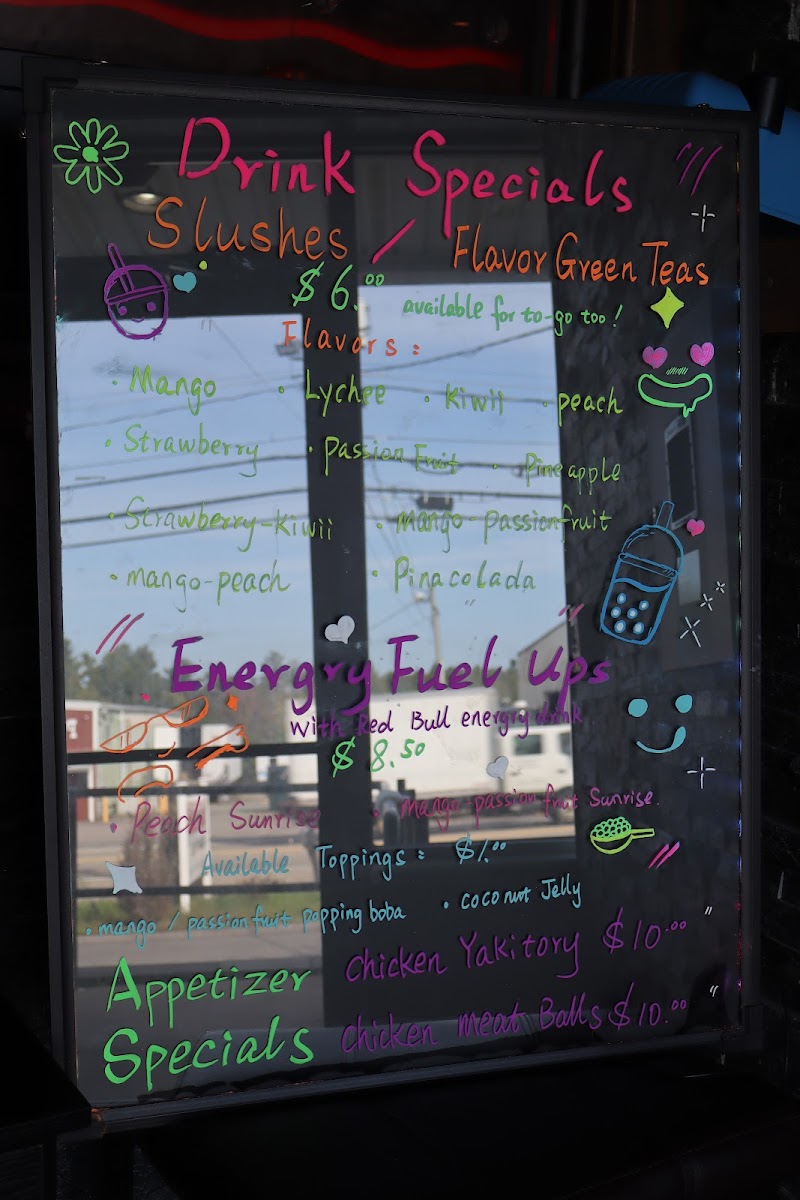 Drink Specials
Slushes / Flavor Green Teas
$6.00 available for to-go too!
Flavors:
· Mango · Lychee · Kiwii · peach
· Strawberry · Passion Fruit · Pineapple
· Strawberry-Kiwii · mango-passionfruit
· mango-peach · Pinacolada
Energry Fuel Ups
With Red Bull energry drink
$8.50
· Peach Sunrise · mango-passion fruit Sunrise.
Available Toppings: $1.00
· mango / passion fruit popping boba · coconut Jelly
Appetizer chicken Yakitory $10.00
Specials chicken meat Balls $10.00